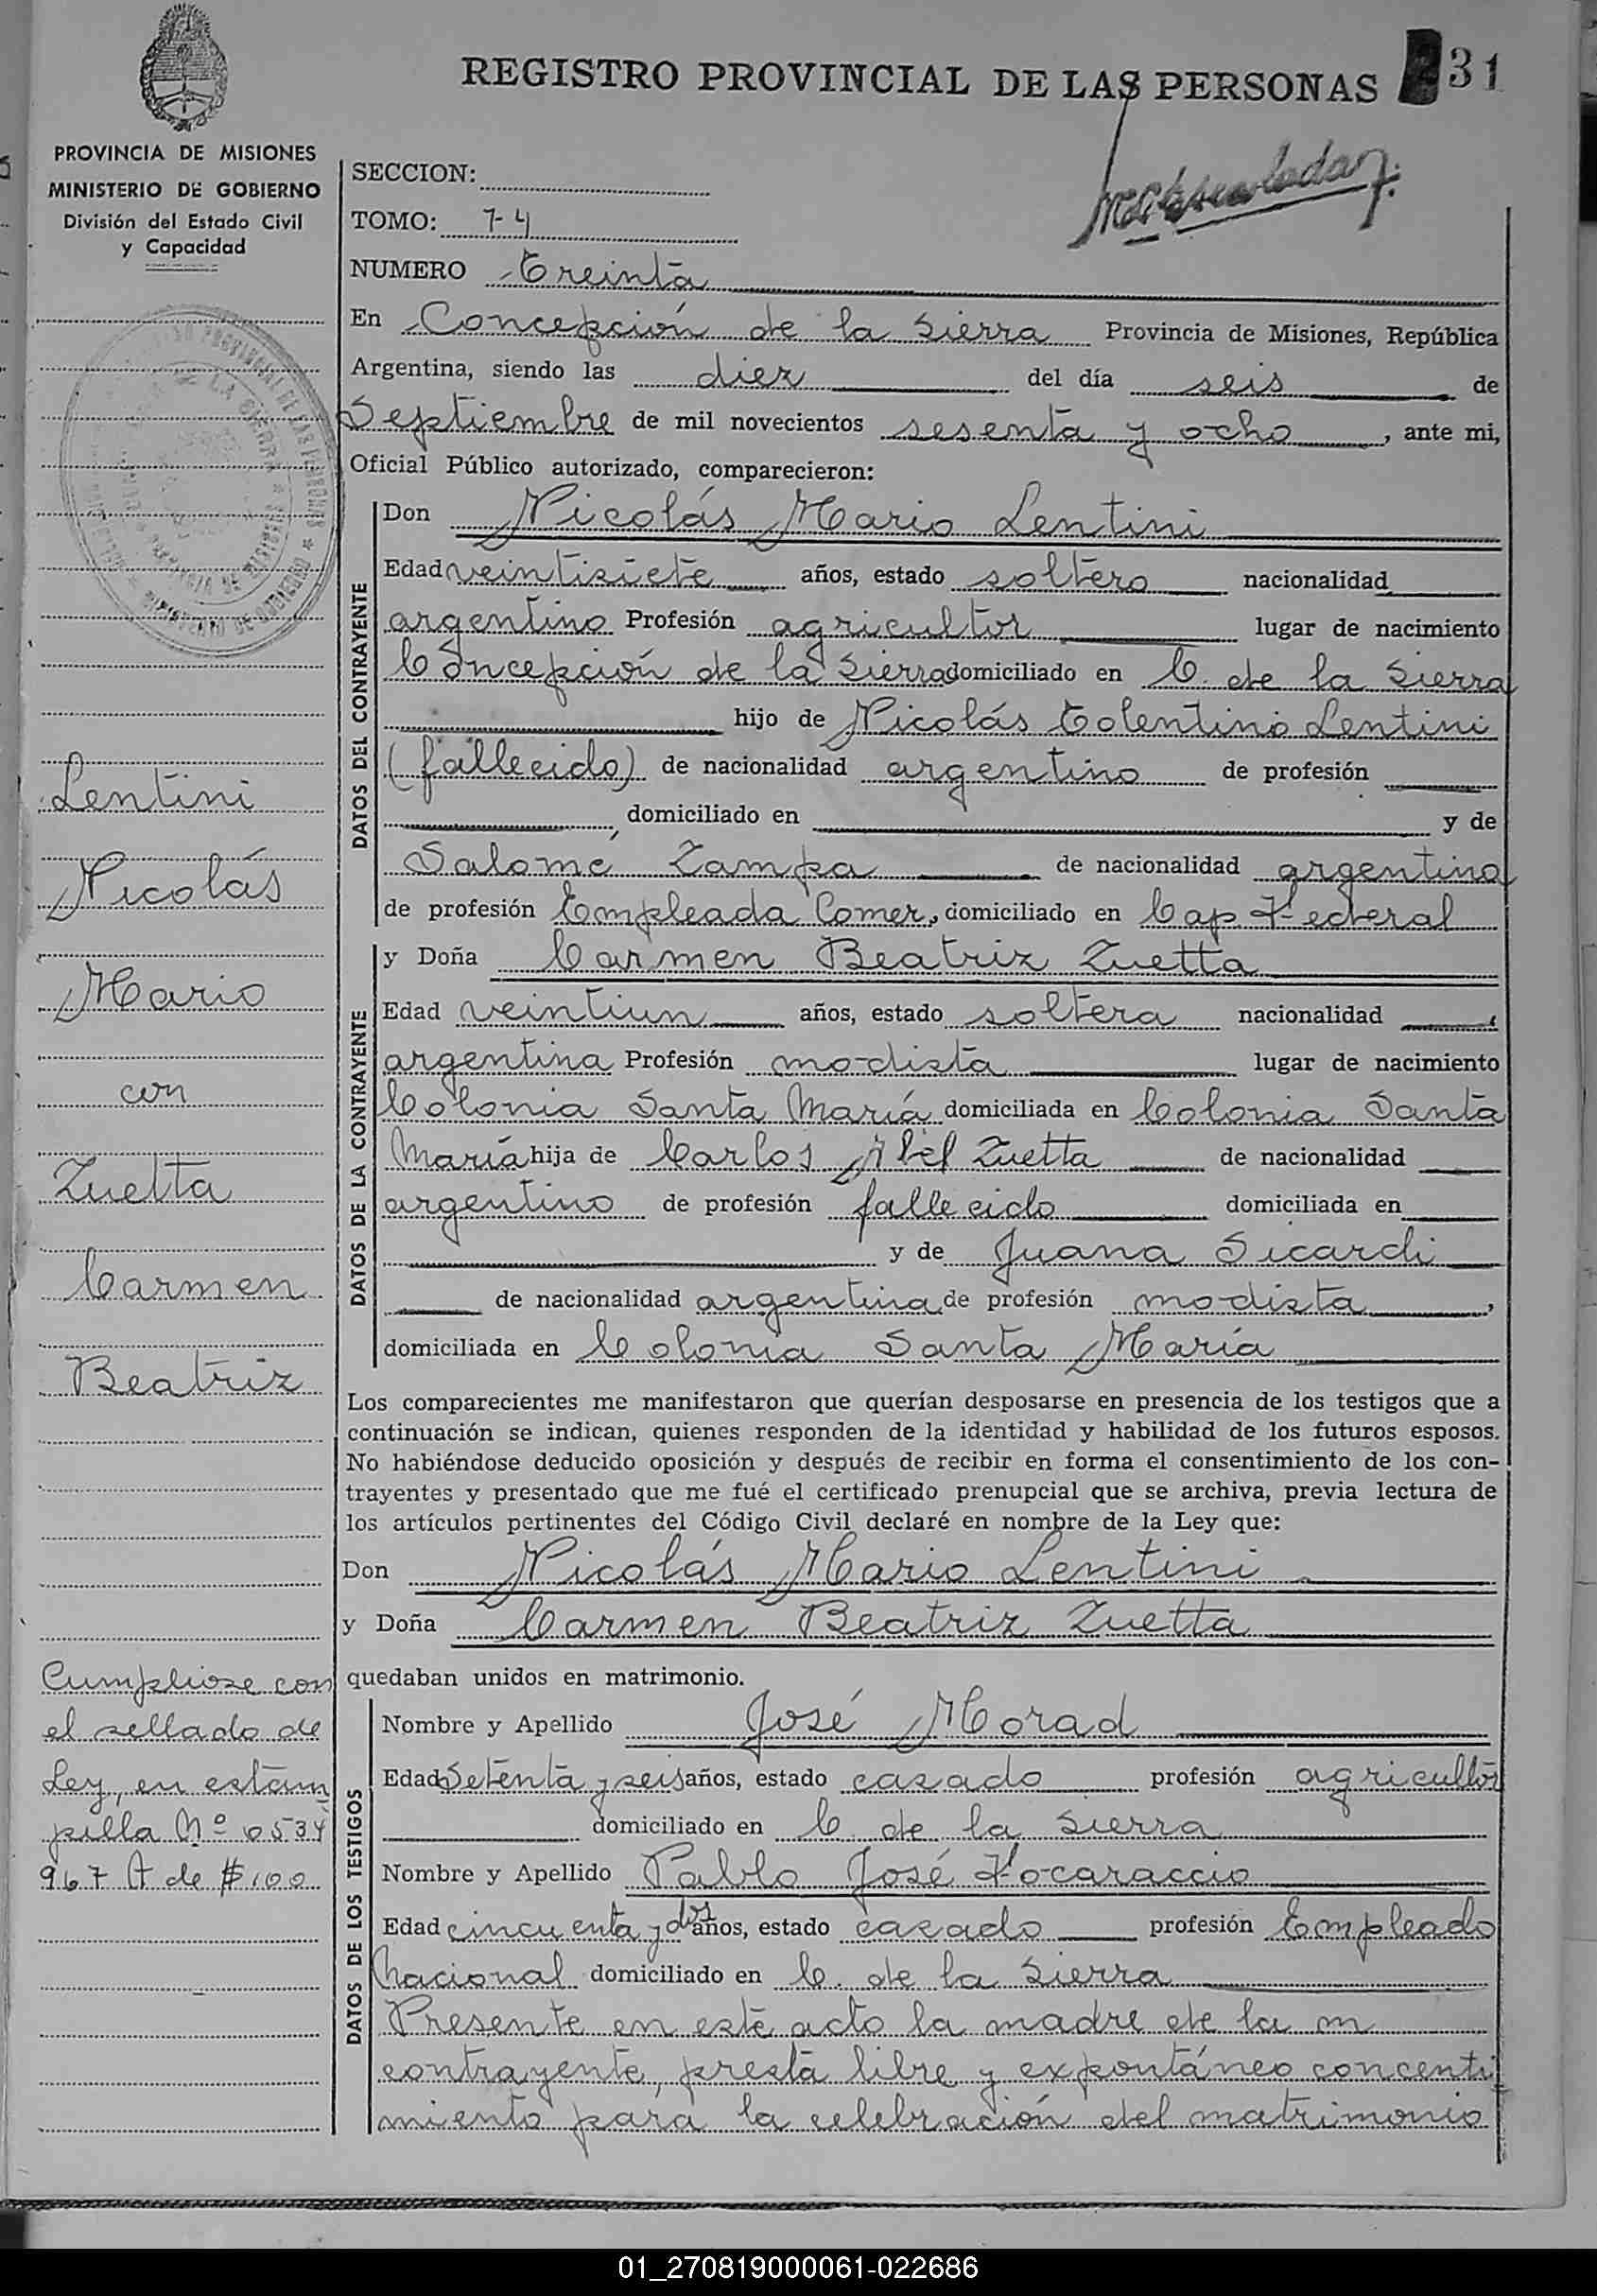 REGISTRO PROVINCIAL DE LAS PERSONAS 31
PROVINCIA DE MISIONES
MINISTERIO DE GOBIERNO
División del Estado Civil
y Capacidad
SECCION:
TOMO: 7-4
NUMERO Treinta
En Concepción de la Sierra Provincia de Misiones, República
Argentina, siendo las diez del día seis de
Septiembre de mil novecientos sesenta y ocho, ante mi,
Oficial Público autorizado, comparecieron:
DATOS DEL CONTRAYENTE
Don Nicolás Mario Lentini
Edad veintisiete años, estado soltero nacionalidad
argentino Profesión agricultor lugar de nacimiento
Concepción de la Sierra domiciliado en C. de la Sierra
hijo de Nicolás Tolentino Lentini
(fallecido) de nacionalidad argentino de profesión
domiciliado en y de
Salomé Zampa de nacionalidad argentina
de profesión Empleada Comer, domiciliado en Cap. Federal
DATOS DE LA CONTRAYENTE
y Doña Carmen Beatriz Zuetta
Edad veintiun años, estado soltera nacionalidad
argentina Profesión modista lugar de nacimiento
Colonia Santa María domiciliada en Colonia Santa
María hija de Carlos Abel Zuetta de nacionalidad
argentino de profesión fallecido domiciliada en
y de Juana Sicardi
de nacionalidad argentina de profesión modista,
domiciliada en Colonia Santa María
Los comparecientes me manifestaron que querían desposarse en presencia de los testigos que a
continuación se indican, quienes responden de la identidad y habilidad de los futuros esposos.
No habiéndose deducido oposición y después de recibir en forma el consentimiento de los con-
trayentes y presentado que me fué el certificado prenupcial que se archiva, previa lectura de
los artículos pertinentes del Código Civil declaré en nombre de la Ley que:
Don Nicolás Mario Lentini
y Doña Carmen Beatriz Zuetta
quedaban unidos en matrimonio.
DATOS DE LOS TESTIGOS
Nombre y Apellido José Morad
Edad Setenta y seis años, estado casado profesión agricultor
domiciliado en C. de la Sierra
Nombre y Apellido Pablo José Focaraccio
Edad cincuenta y dos años, estado casado profesión Empleado
Nacional domiciliado en C. de la Sierra
Presente en este acto la madre de la m
contrayente, presta libre y expontáneo concenti
miento para la celebración del matrimonio
Lentini
Nicolás
Mario
con
Zuetta
Carmen
Beatriz
Cumpliose con
el sellado de
Ley, en estam
pilla Nº 0534
967 A de $ 100
01_270819000061-022686